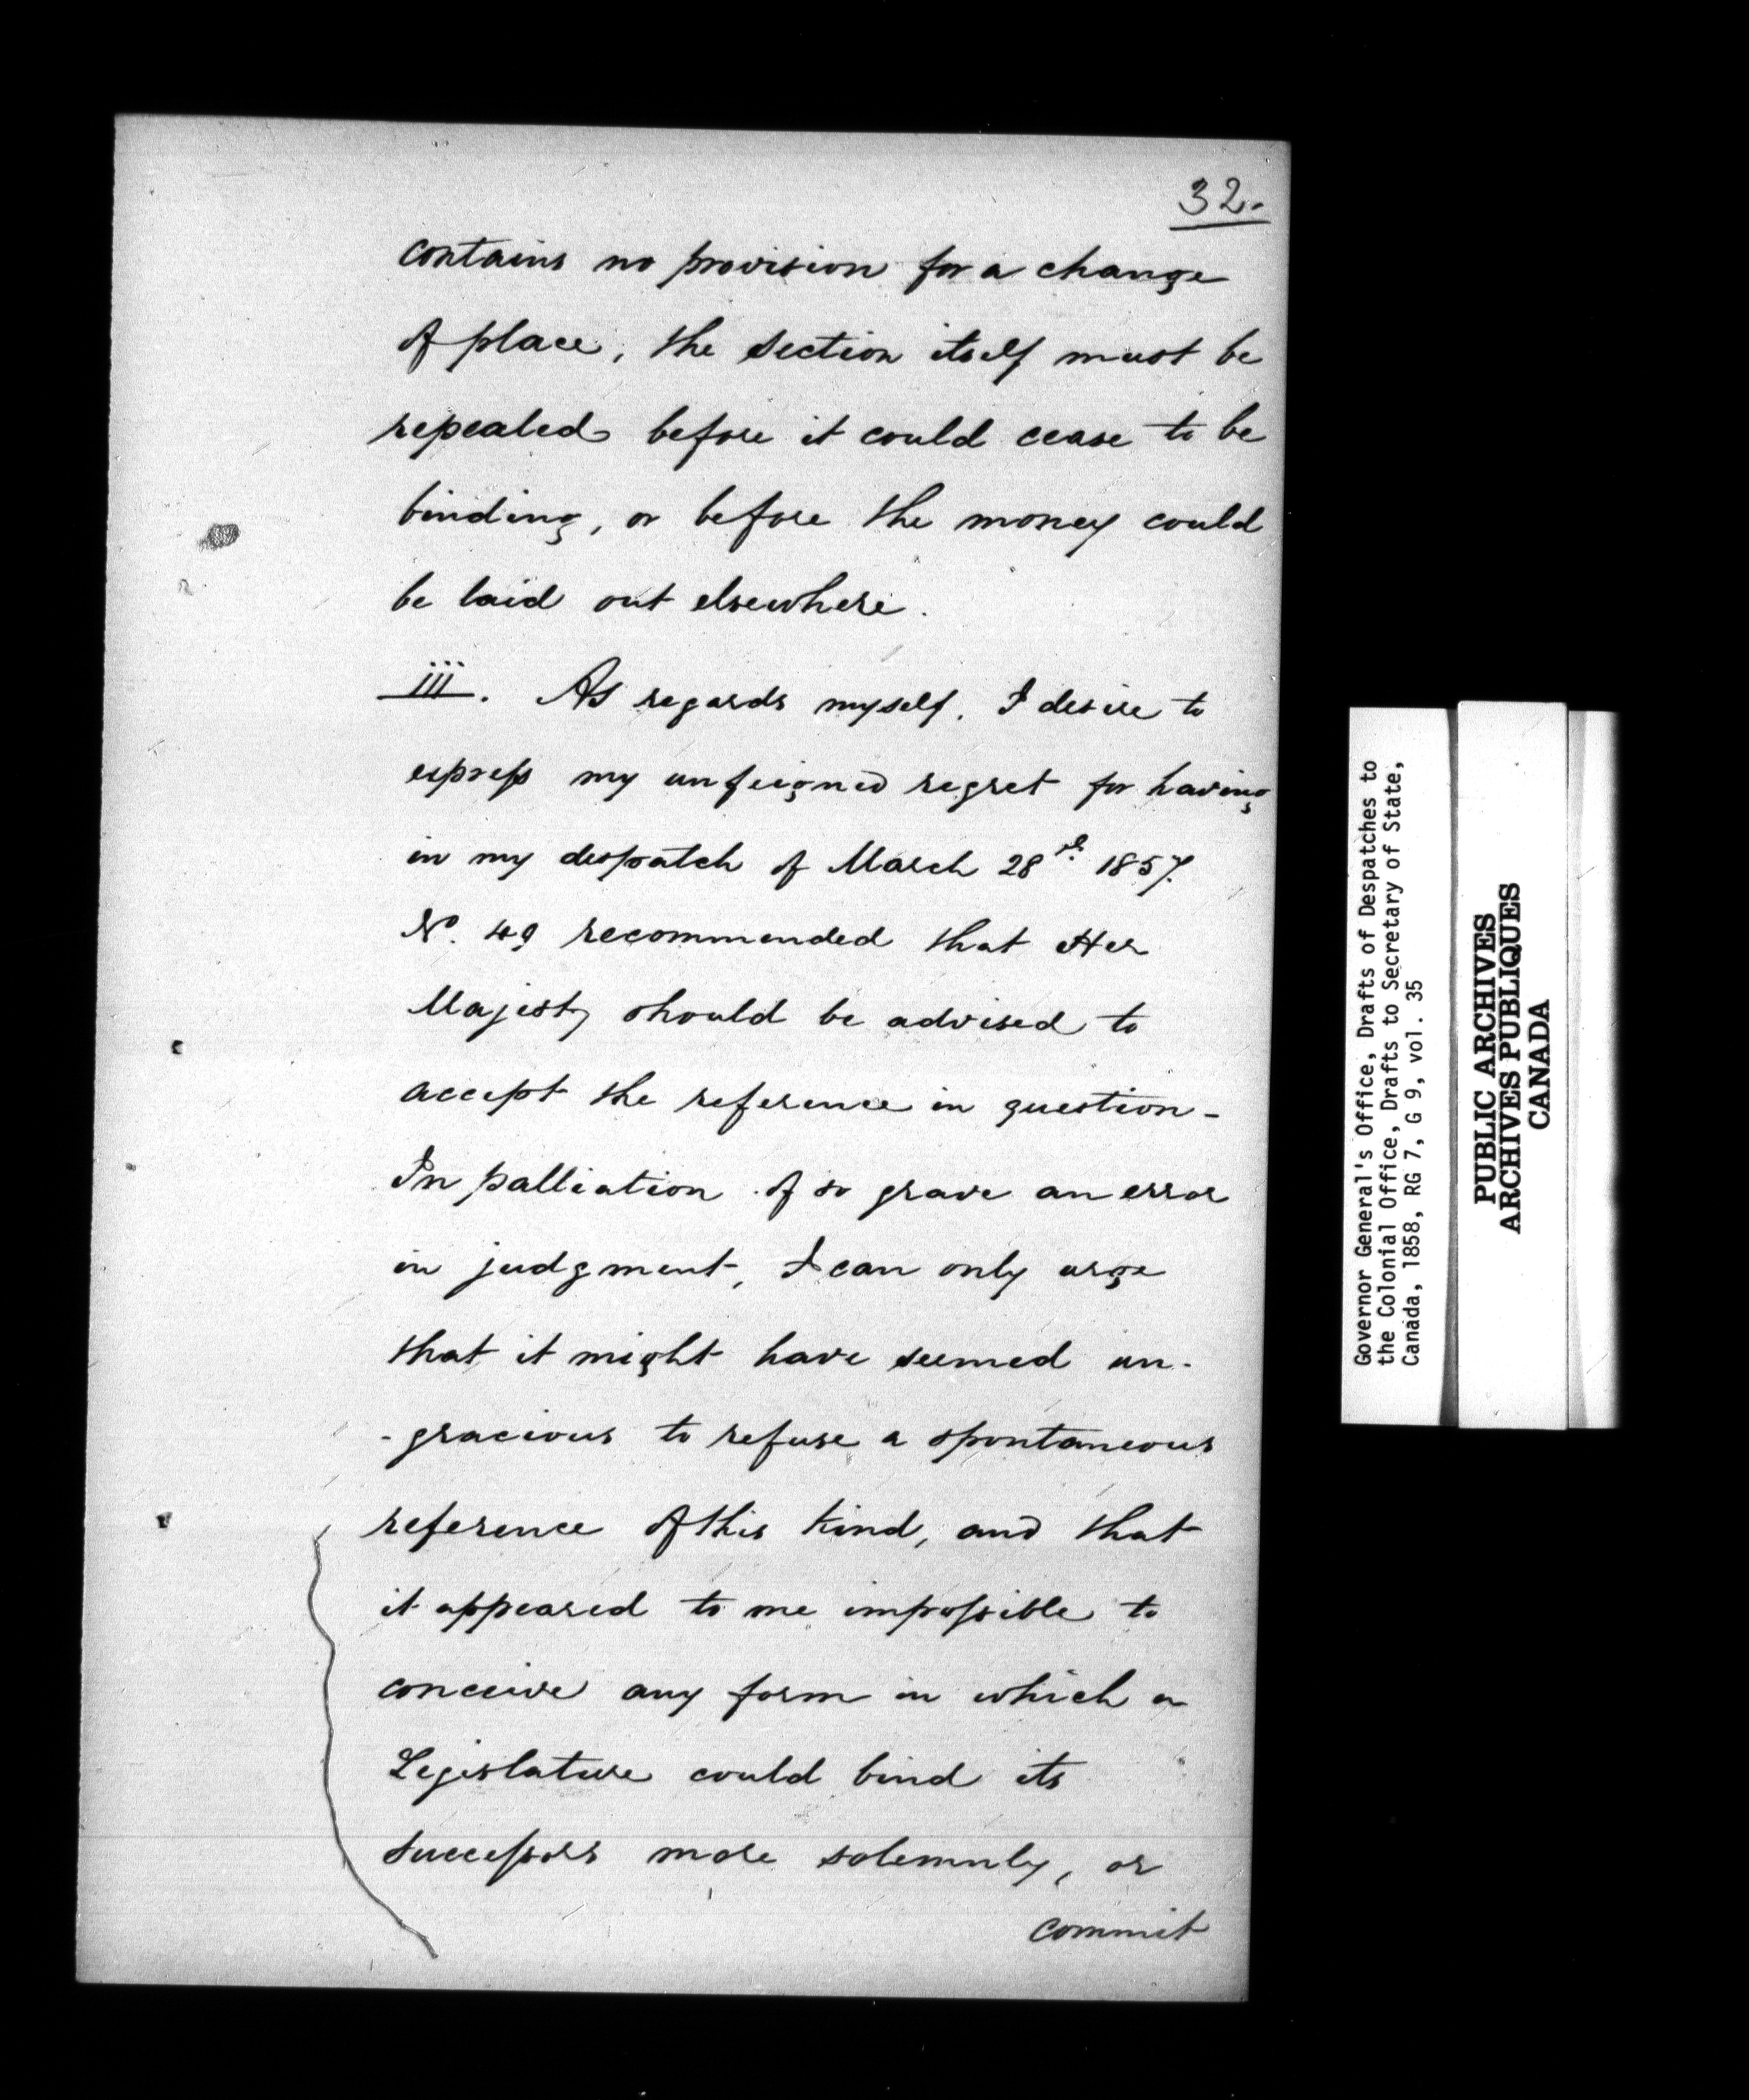 32.
contains no provision for a change
of place, the section itself must be
repealed before it could cease to be
binding, or before the money could
be laid out elsewhere.
iii. As regards myself, I desire to
express my unfeigned regret for having
in my despatch of March 28th 1857.
No. 49 recommended that Her
Majesty should be advised to
accept the reference in question -
In palliation of so grave an error
in judgment, I can only urge
that it might have seemed un-
-gracious to refuse a spontaneous
reference of this kind, and that
it appeared to me impossible to
conceive any form in which a
Legislature could bind its
successors more solemnly, or
commit
Governor General's Office, Drafts of Despatches to
the Colonial Office, Drafts to Secretary of State,
Canada, 1858, RG 7, G 9, vol. 35
PUBLIC ARCHIVES
ARCHIVES PUBLIQUES
CANADA